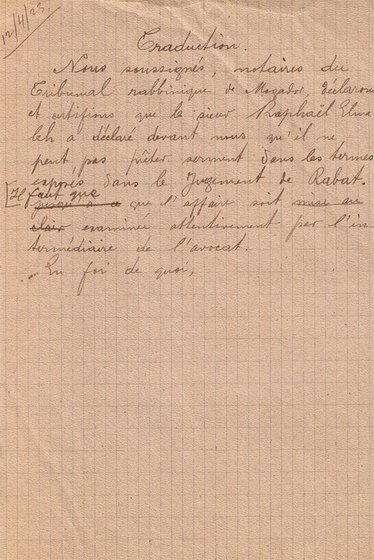 12/4/23.
Traduction.
Nous soussignés, notaires du
Tribunal rabbinique de Mogador, déclarons
et certifions que le sieur Raphaël Elma
leh a déclaré devant nous qu'il ne
peut pas prêter serment dans les termes
exprès dans le Jugement de Rabat.
Il faut que
jusqu'à ce que l'affaire soit mise au
clair examinée attentivement par l'in
termédiaire de l'avocat.
En foi de quoi,